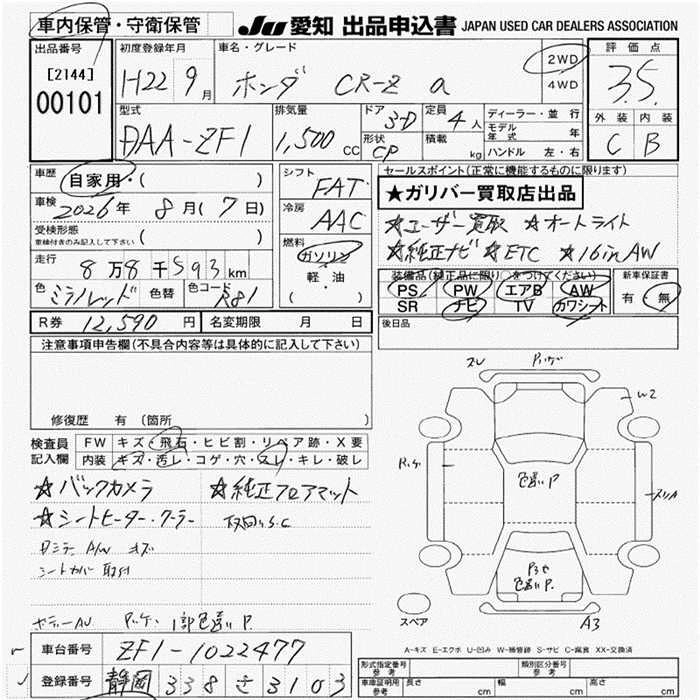 車内保管・守衛保管 JU 愛知 出品申込書 JAPAN USED CAR DEALERS ASSOCIATION
出品番号 初度登録年月 車名・グレード 評価点
[2144] 00101 H22 9月 ホンダ CR-Z α 2WD 4WD 3.5
型式 排気量 ドア 3-D 定員 4人 ディーラー・並行 外装 内装
DAA-ZF1 1,500cc 形状 CP 積載 kg モデル年式 年 C B
ハンドル 左・右
車歴 自家用・( ) シフト FAT セールスポイント(正常に機能するものに限ります)
★ガリバー買取店出品
車検 2026年 8月(7日) 冷房 AAC ☆ユーザー買取 ☆オートライト
受検形態 車検付きのみ記入して下さい ( ) 燃料 ガソリン 軽・油 ☆純正ナビ ☆ETC ☆16inAW
走行 8万8千593km 装備品(純正品に限り○をつけてください) 新車保証書
色 ミラノレッド 色替 色コード R81 PS PW エアB AW 有・無
SR ナビ TV カワシート
R券 12,590円 名変期限 月 日 後日品
注意事項申告欄(不具合内容等は具体的に記入して下さい)
修復歴 有 (箇所 )
検査員記入欄 FW キズ・飛石・ヒビ割・リペア跡・X要
内装 キズ・汚レ・コゲ・穴・スレ・キレ・破レ
☆バックカメラ ☆純正フロアマット
☆シートヒーター・クーラー 取回しS.C
シートカバー取付
ボディーAU 1部色違いP.
スレ
W2
色違いP
スリA
色違いP.
A3
スペア
A-キズ E-エクボ U-凹み W-補修跡 S-サビ C-腐食 XX-交換済
車台番号 ZF1-1022477
登録番号 静岡 338 さ 3103
形式指定番号 参考 類別区分番号 参考
車庫証明用 参考 長さ cm 幅 cm 高さ cm